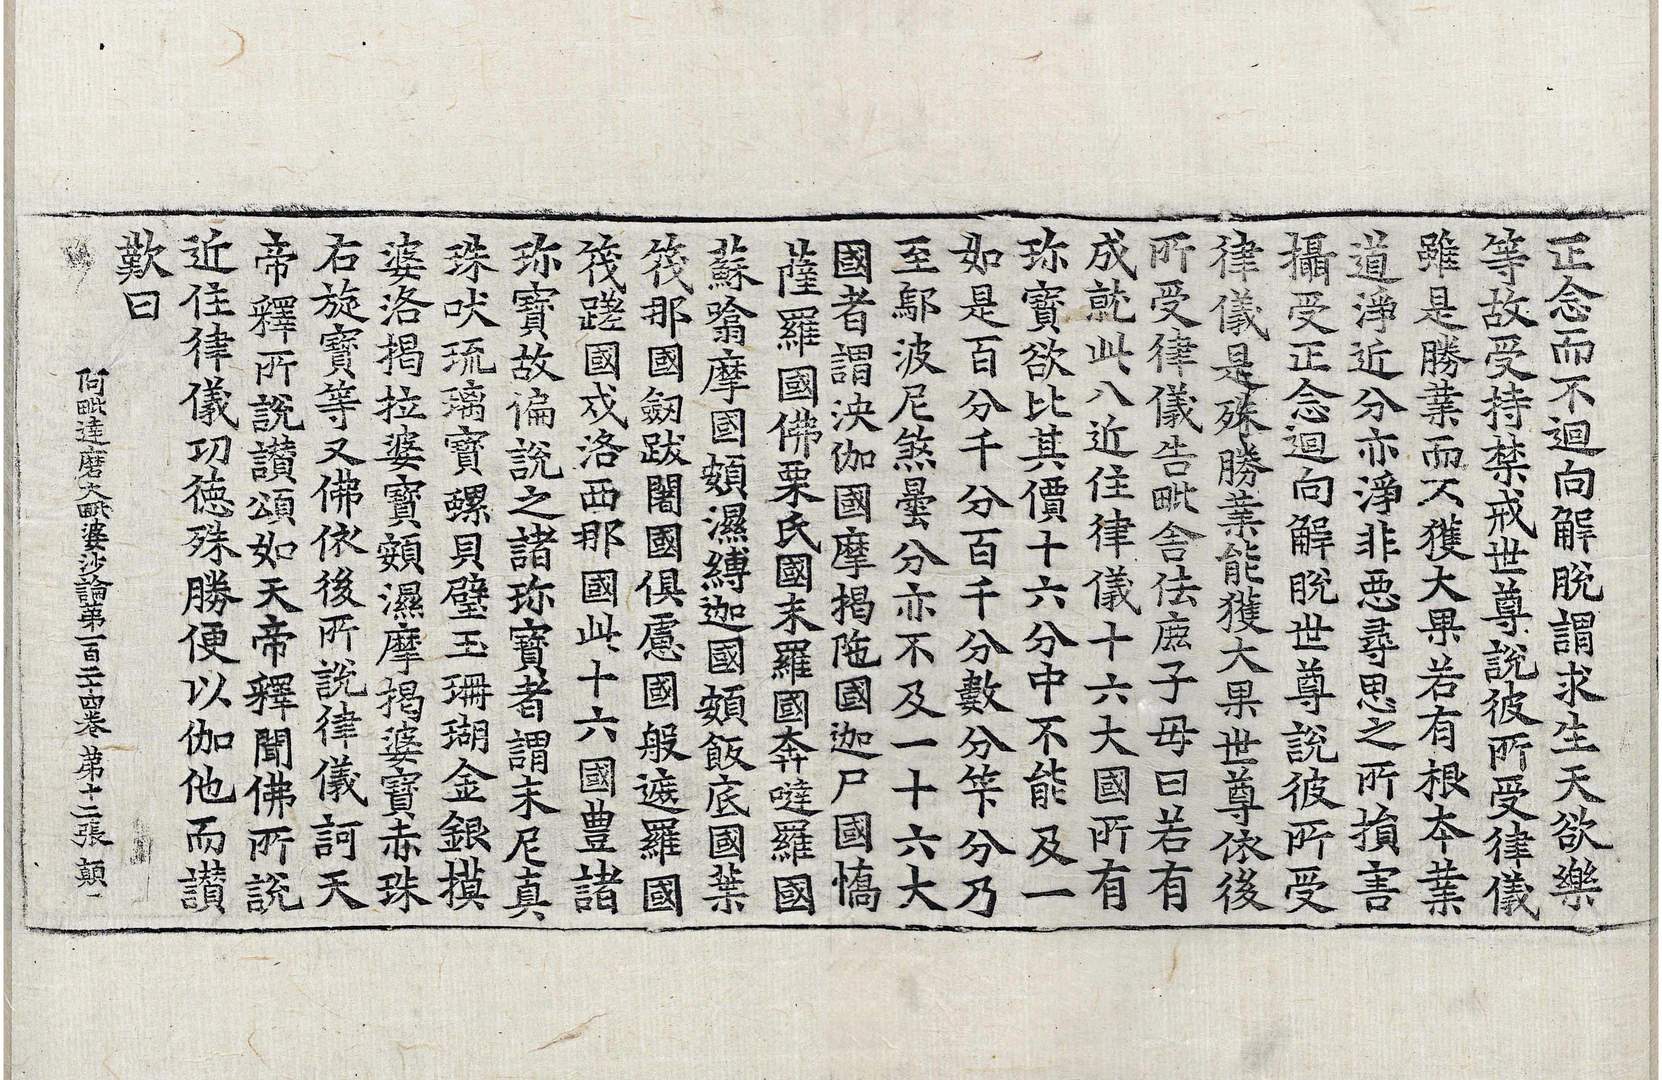 正念而不迴向解脫謂求生天欲樂
等故受持禁戒世尊說彼所受律儀
雖是勝業而不獲大果若有根本業
道淨近分亦淨非惡尋思之所損害
攝受正念迴向解脫世尊說彼所受
律儀是殊勝業能獲大果世尊依後
所受律儀告毗舍佉鹿子母曰若有
成就此八近住律儀十六大國所有
珎寶欲比其價十六分中不能及一
如是百分千分百千分數分筭分乃
至鄔波尼煞曇分亦不及一十六大
國者謂泱伽國摩揭陁國迦尸國憍
薩羅國佛栗氏國末羅國奔噠羅國
蘇噏摩國頞濕縛迦國頞飯底國葉
筏那國劒跋闍國俱盧國般遮羅國
筏蹉國戍洛西那國此十六國豊諸
珎寶故偏說之諸珎寶者謂末尼真
珠吠琉璃寶螺貝璧玉珊瑚金銀摸
婆洛揭拉婆寶頞濕摩揭婆寶赤珠
右旋寶等又佛依後所說律儀訶天
帝釋所說讃頌如天帝釋聞佛所說
近住律儀功德殊勝便以伽他而讃
歎曰
阿毗達磨大毗婆沙論第一百二十四卷 第十二張 顛